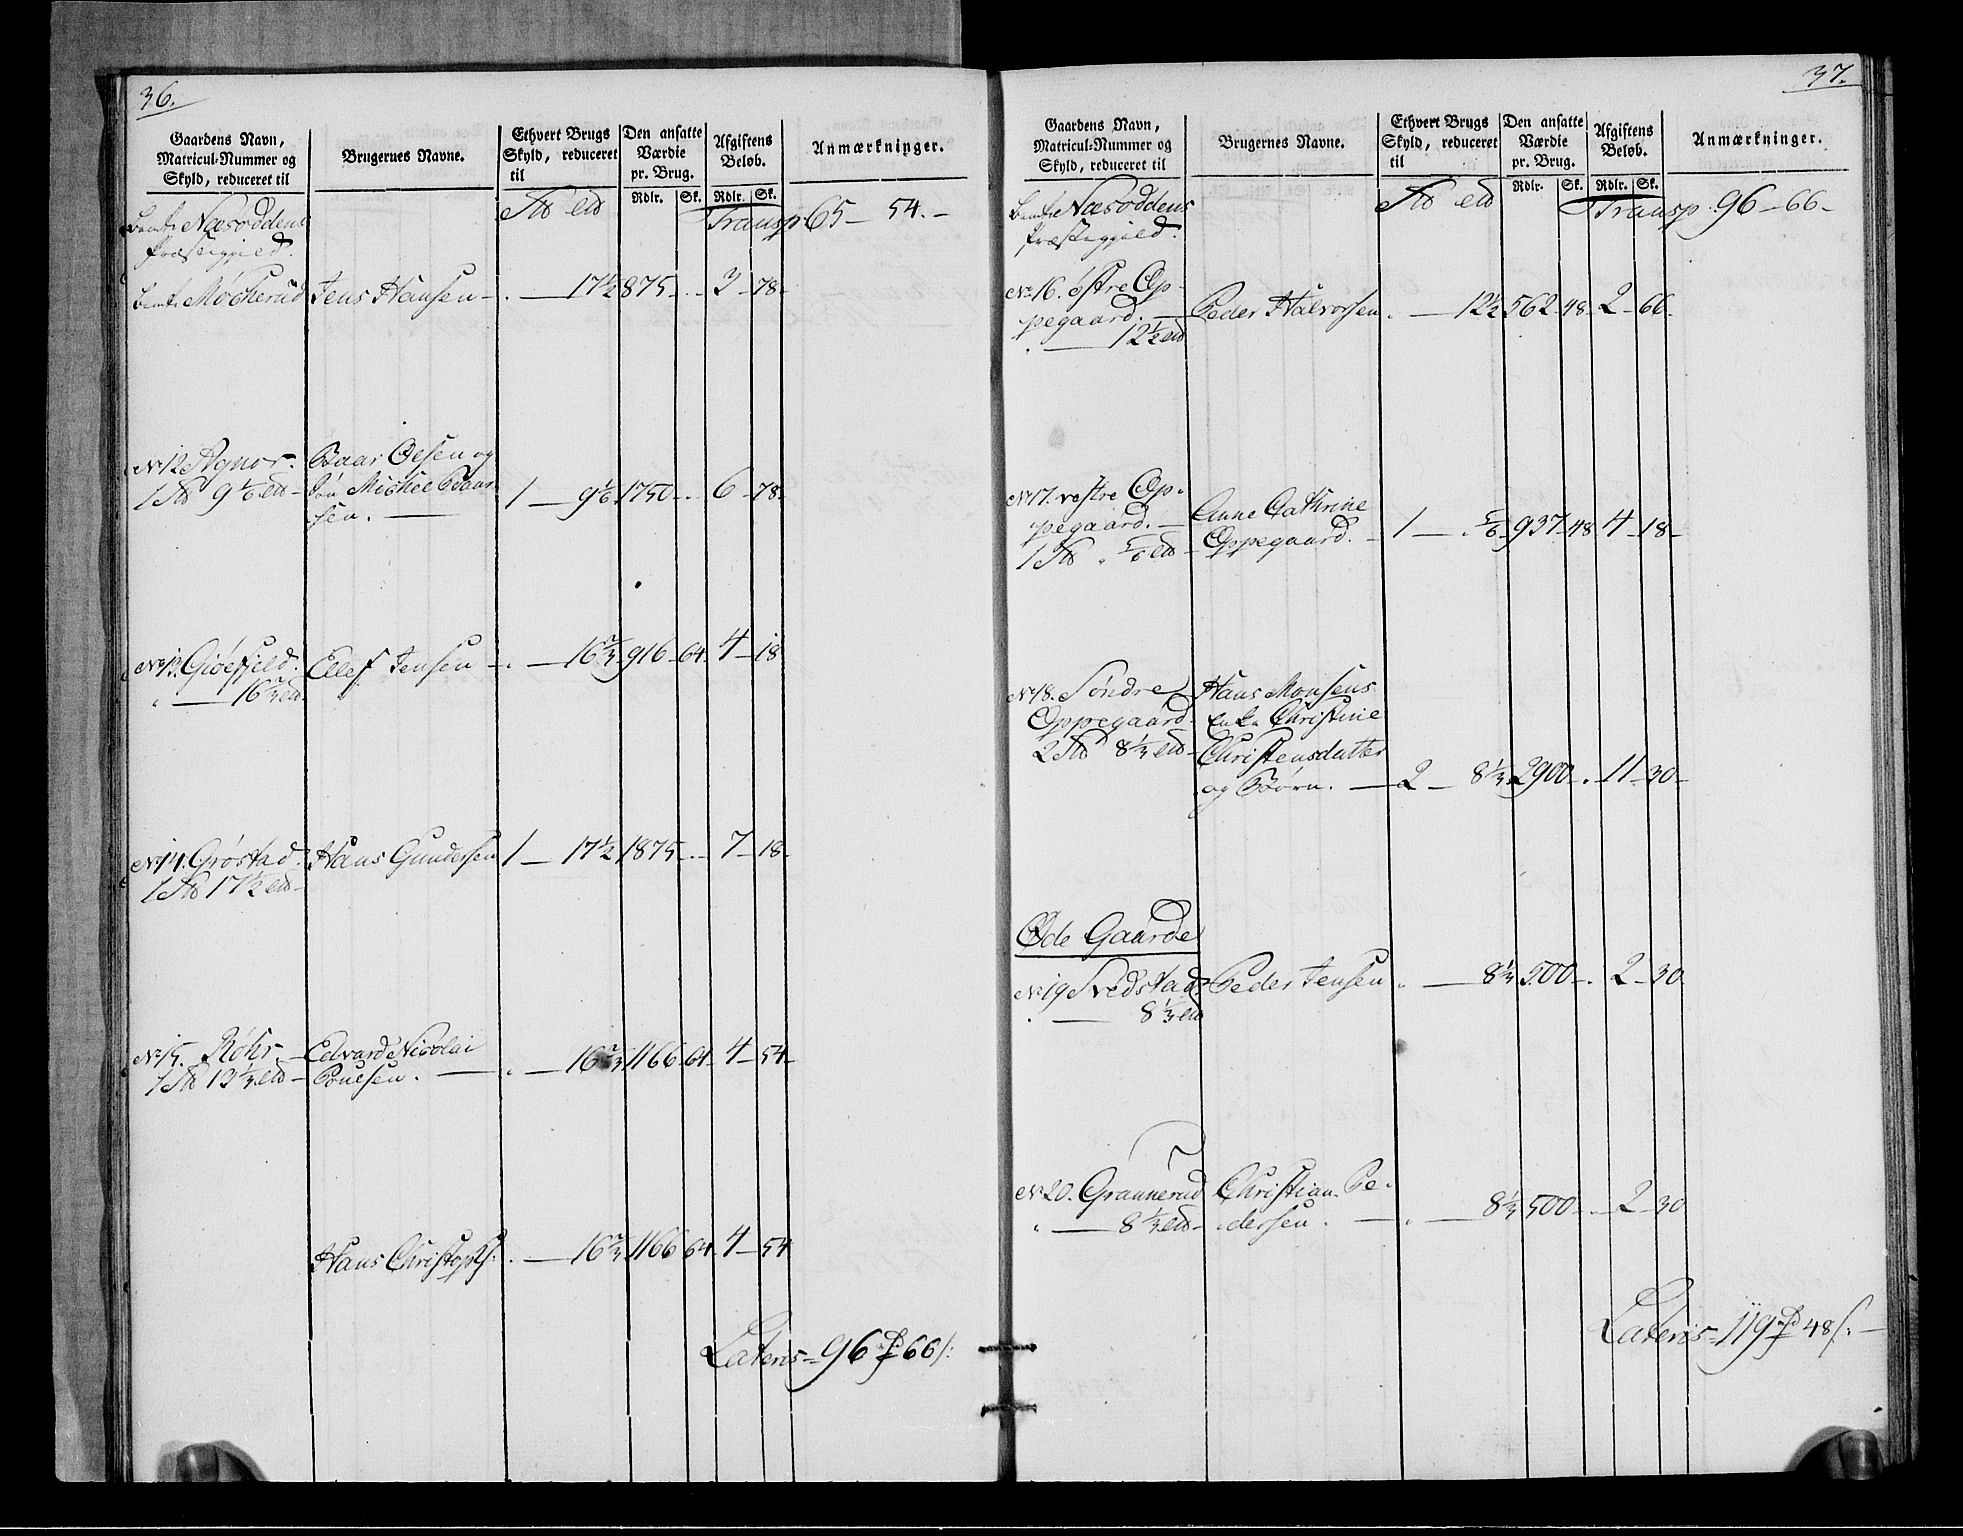 36.
Gaardens Navn, Matricul-Nummer og Skyld, reduceret til
Brugernes Navne.
Ethvert Brugs Skyld, reduceret til
Den ansatte Værdie pr. Brug.
Afgiftens Beløb.
Anmærkninger.
Rdlr. Sk. Rdlr. Sk.
Næsoddens Transp 65 – 54. –
Præstegield.
Mocherud Jens Hansen – . — 17½ 875 – . 3 – 78 –
No 12 Agnor. Baar Oelsen og
1 9⅙ Søn Michel Baar- 1 — 9⅙ 1750 – . 6 – 78 –
sen. —
No 13. Giøefjeld. Ellef Jensen – . — 16⅔ 916 – 64 – 4 – 18
„ — 16⅔
No 14. Grøstad. Hans Gundersen 1 — 17½ 1875 – . 7 – 18 –
1 17½
No 15. Røhr. – Edvard Nicolai . — 16⅔ 1166 – 64 – 4 – 54 –
1 13⅓ – Pouelsen. —
Hans Christophs: . — 16⅔ 1166 64 – 4 – 54
Lateris = 96 66 /:
37.
Gaardens Navn, Matricul-Nummer og Skyld, reduceret til
Brugernes Navne.
Ethvert Brugs Skyld, reduceret til
Den ansatte Værdie pr. Brug.
Afgiftens Beløb.
Anmærkninger.
Rdlr. Sk. Rdlr. Sk.
Næsoddens Transp : 96 – 66 –
Præstegield.
No 16. østre Op-
pegaard. — Peder Halvorsen . — 12½ 562 – 48 – 2 – 66 –
. — 12½
No 17. vestre Op- Anne Cathrine
pegaard. — Oppegaard. – 1 — . ⅚ 937 – 48 4 – 18 –
1 „ ⅚
No 18. Søndre Hans Monsens
Oppegaard. Enke Christine
2 8⅓ – Christensdatter
og Børn. — 2 — 8⅓ 2900 – . 11 – 30 –
Øde Gaarde
No 19 Svedstad Peder Jensen . — 8⅓ 500 – . 2 – 30
. — 8⅓
No 20. Grannerud Christian Pe-
„ — 8⅓ – dersen. — . — 8⅓ 500 – . 2 – 30
Lateris = 119 48 /: —